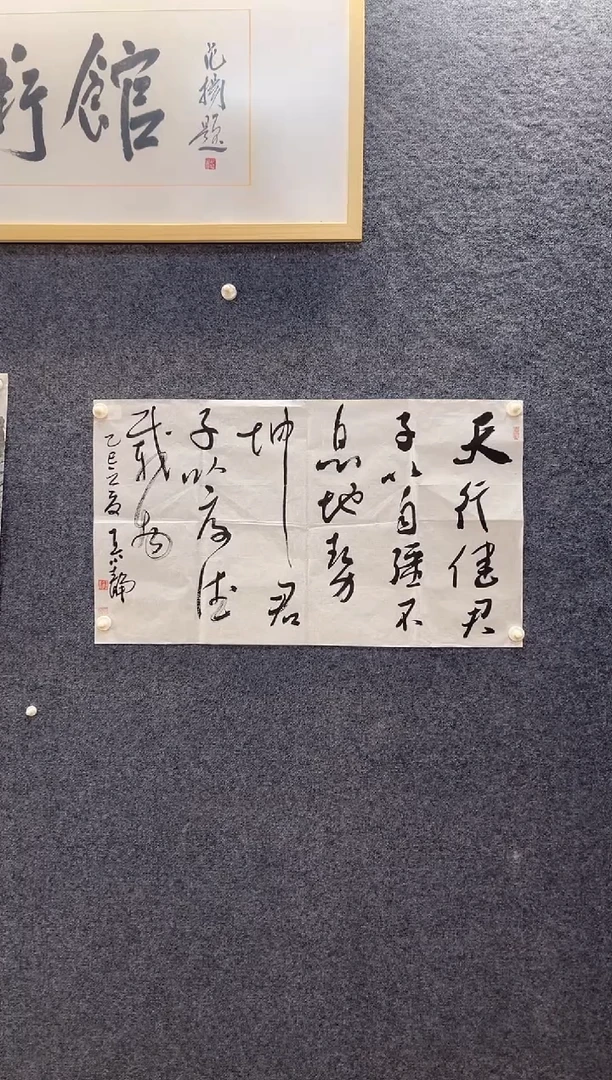 術館
范掤題
天行健君
子以自强不
息地势
坤君
子以厚德
载物
乙巳之夏